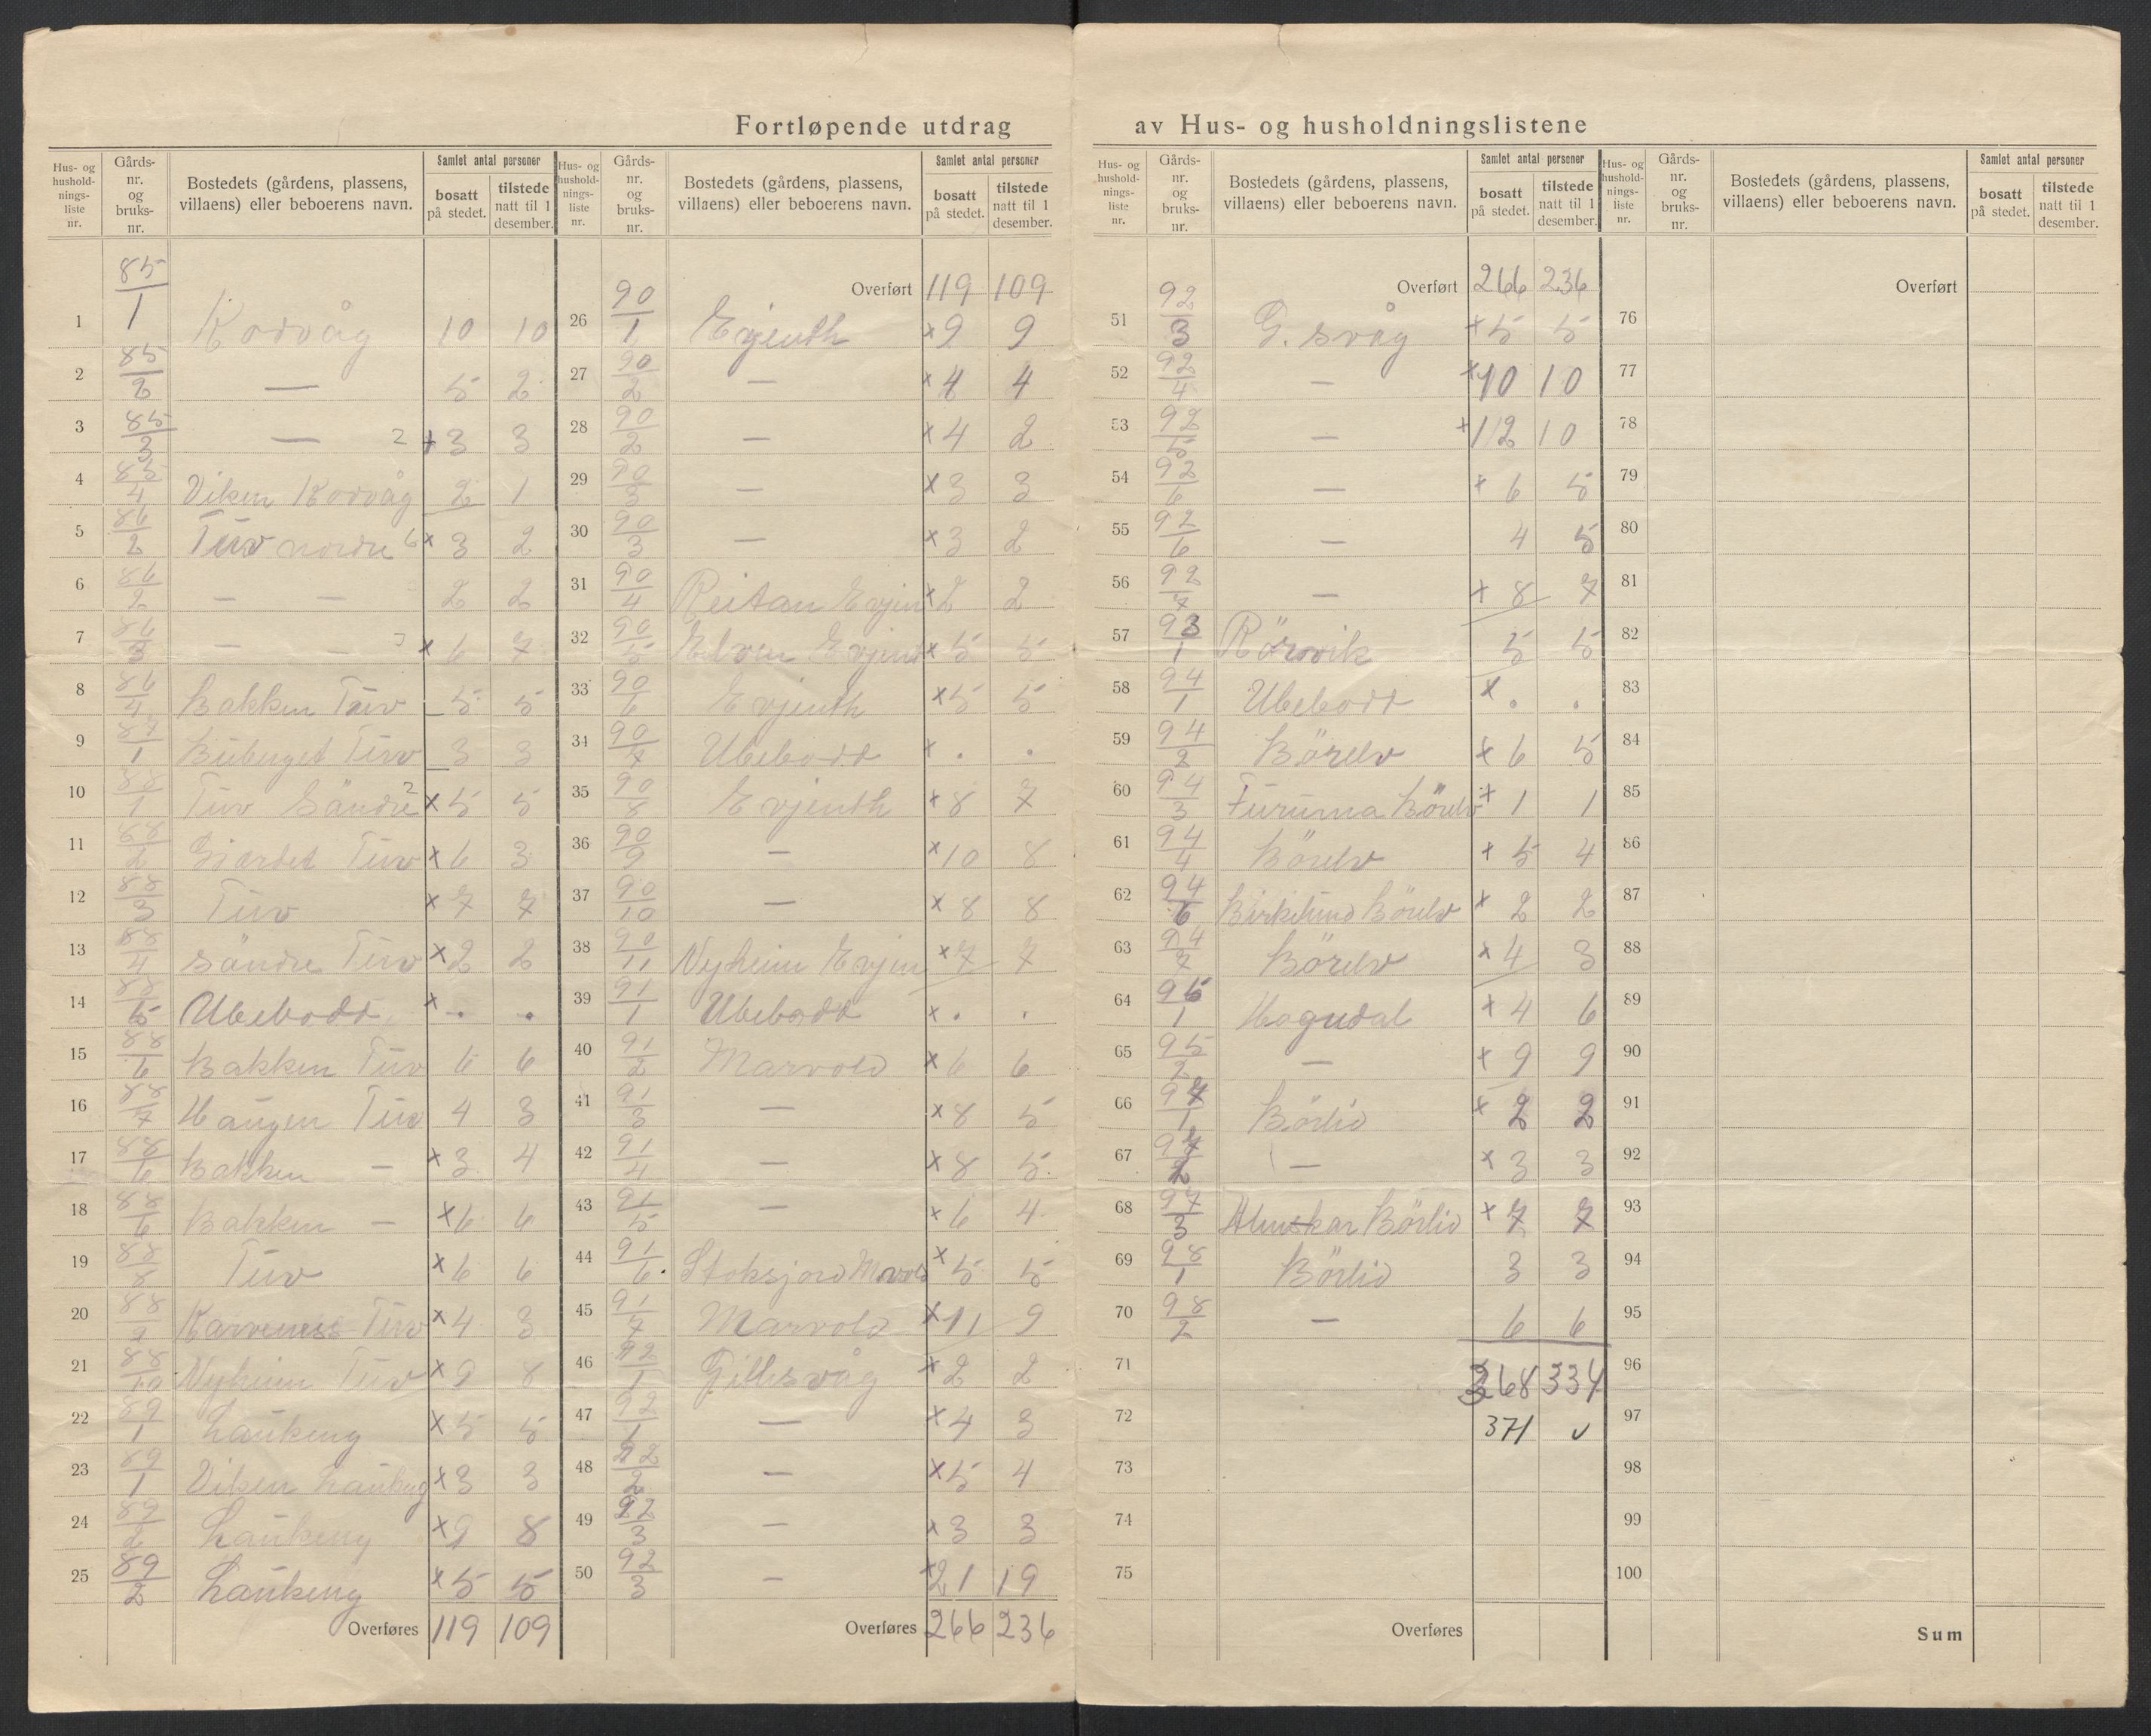 Fortløpende utdrag av Hus- og husholdningslistene
Hus- og husholdningsliste nr. Gårds-nr. og bruks-nr. Bostedets (gårdens, plassens, villaens) eller beboerens navn. Samlet antal personer bosatt på stedet. tilstede natt til 1 desember.
1 85/1 Korvåg 10 10
2 85/2 — 5 2
3 85/3 — 2 x 3 3
4 85/4 Viken Korvåg 2 1
5 86/2 Tuv nordre 6 x 3 2
6 86/2 — — 2 2
7 86/3 — — x 6 7
8 86/4 Bakken Tuv 5 5
9 87/1 Tuv 3 3
10 88/1 Tuv Söndre 2 x 5 5
11 88/2 Gjærdet Tuv x 6 3
12 88/3 Tuv x 7 7
13 88/4 Söndre Tuv x 2 2
14 88/5 Ubebodd x . .
15 88/6 Bakken Tuv 6 6
16 88/7 Haugen Tuv 4 3
17 88/6 Bakken — x 3 4
18 88/6 Bakken — x 6 6
19 88/8 Tuv x 6 6
20 88/9 Tuv x 4 3
21 88/10 Nyheim Tuv x 9 8
22 89/1 Laukeng x 5 5
23 89/1 Viken Laukeng x 3 3
24 89/2 Laukeng x 9 8
25 89/2 Laukeng x 5 5
Overføres 119 109
Hus- og husholdningsliste nr. Gårds-nr. og bruks-nr. Bostedets (gårdens, plassens, villaens) eller beboerens navn. Samlet antal personer bosatt på stedet. tilstede natt til 1 desember.
Overført 119 109
26 90/1 Evjenth x 9 9
27 90/2 — x 4 4
28 90/2 — x 4 2
29 90/3 — x 3 3
30 90/3 — x 3 2
31 90/4 Reitan Evjen x 2 2
32 90/5 Elven Evjent x 5 5
33 90/6 Evjenth x 5 5
34 90/7 Ubebodd x . .
35 90/8 Evjenth x 8 7
36 90/9 — x 10 8
37 90/10 — x 8 8
38 90/11 Nyheim Evjen x 7 7
39 91/1 Ubebodd x . .
40 91/2 Marvold x 6 6
41 91/3 — x 8 5
42 91/4 — x 8 5
43 91/5 — x 6 4
44 91/6 Stoksjord x 5 5
45 91/7 Marvold x 11 9
46 92/1 Gillesvåg x 2 2
47 92/1 — x 4 3
48 92/2 — x 5 4
49 92/3 — x 3 3
50 92/3 — x 21 19
Overføres 266 236
Hus- og husholdningsliste nr. Gårds-nr. og bruks-nr. Bostedets (gårdens, plassens, villaens) eller beboerens navn. Samlet antal personer bosatt på stedet. tilstede natt til 1 desember.
Overført 266 236
51 92/3 G. svåg x 5 5
52 92/4 — x 10 10
53 92/5 — x 12 10
54 92/6 — x 6 5
55 92/6 — 4 5
56 92/7 — x 8 7
57 93/1 Rörvik 5 5
58 94/1 Ubebodd x . .
59 94/2 Börelv x 6 5
60 94/3 Furumo Börelv x 1 1
61 94/4 Börelv x 5 4
62 94/6 Birkelund Börelv x 2 2
63 94/7 Börelv x 4 3
64 95/1 Hogndal x 4 6
65 95/2 — x 9 9
66 97/1 Börlid x 2 2
67 97/2 — x 3 3
68 97/3 Börlid x 7 7
69 98/1 Börlid 3 3
70 98/2 — 6 6
71 368 334
72 371 v
73
74
75
Overføres
Hus- og husholdningsliste nr. Gårds-nr. og bruks-nr. Bostedets (gårdens, plassens, villaens) eller beboerens navn. Samlet antal personer bosatt på stedet. tilstede natt til 1 desember.
Overført
76
77
78
79
80
81
82
83
84
85
86
87
88
89
90
91
92
93
94
95
96
97
98
99
100
Sum